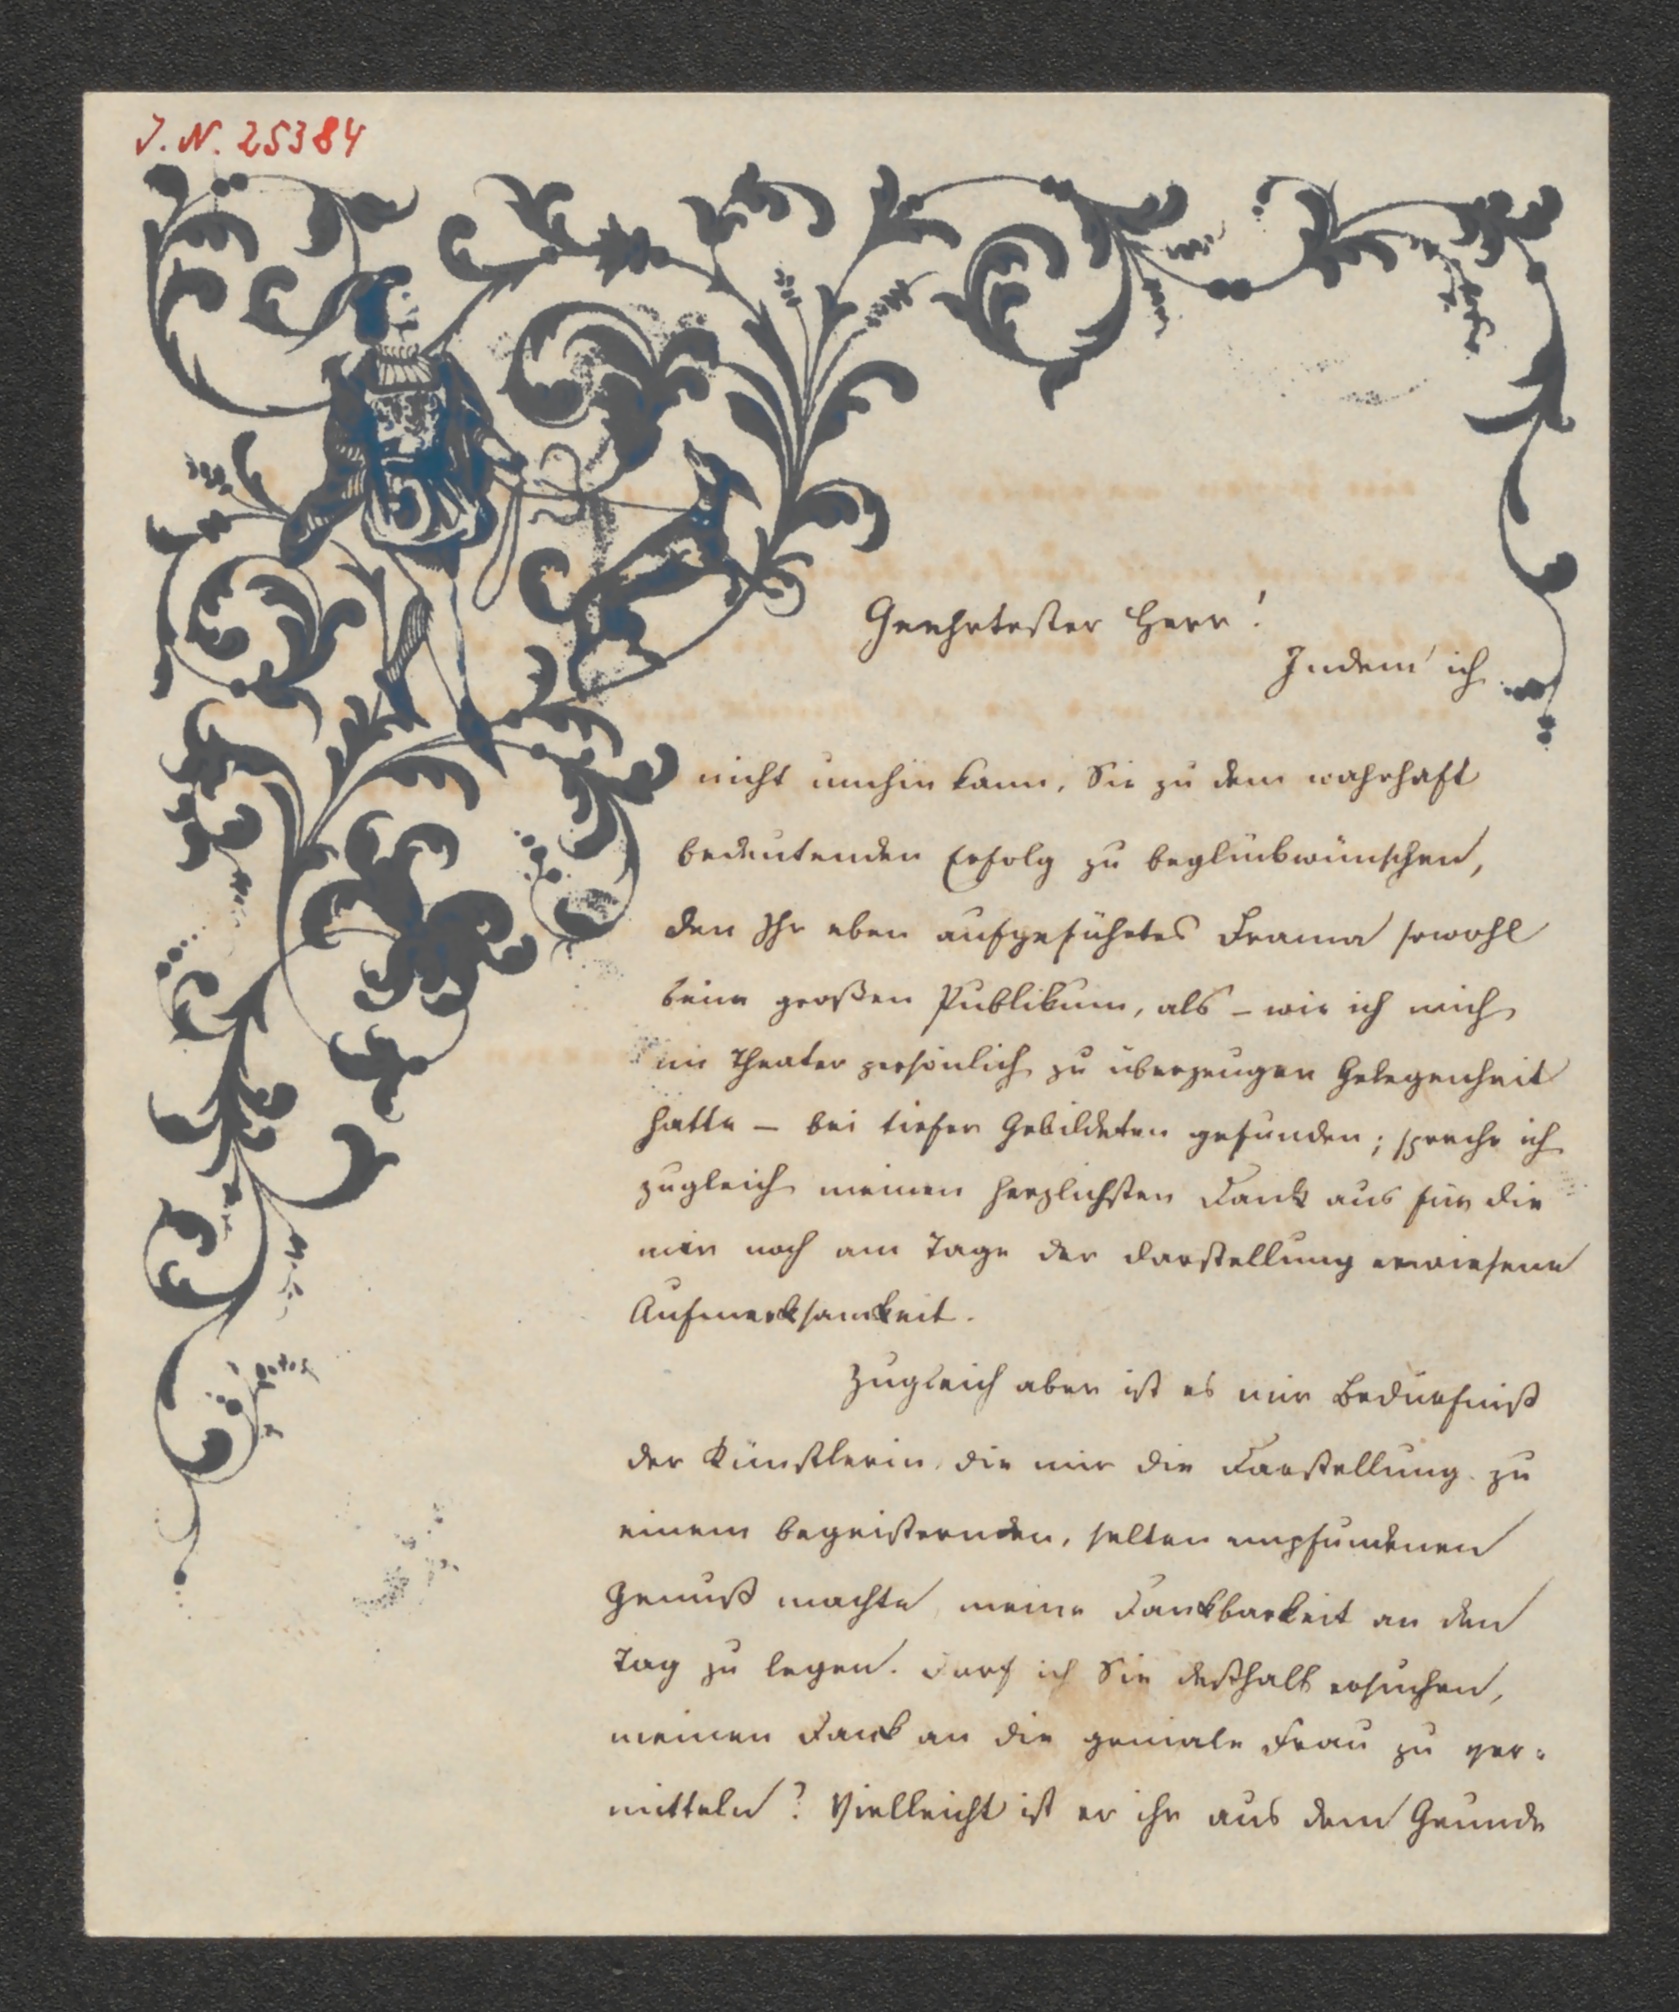 J. N. 25384
Geehrtester Herr!
Indem ich
nicht umhin kann, Sie zu dem wahrhaft
bedeutenden Erfolg zu beglückwünschen,
den Ihr eben aufgeführtes Drama sowohl
beim großen Publikum, als – wie ich mich
im Theater persönlich zu überzeugen Gelegenheit
hatte – bei tiefer Gebildeten gefunden; spreche ich
zugleich meinen herzlichsten Dank aus für die
mir noch am Tage der Darstellung erwiesene
Aufmerksamkeit.
Zugleich aber ist es mir Bedürfniß
der Künstlerin, die mir die Darstellung zu
einem begeisternden, selten empfundenen
Genuß machte, meine Dankbarkeit an den
Tag zu legen. Darf ich Sie deßhalb ersuchen,
meinen Dank an die geniale Frau zu ver-
mitteln? Vielleicht ist er ihr aus dem Grunde